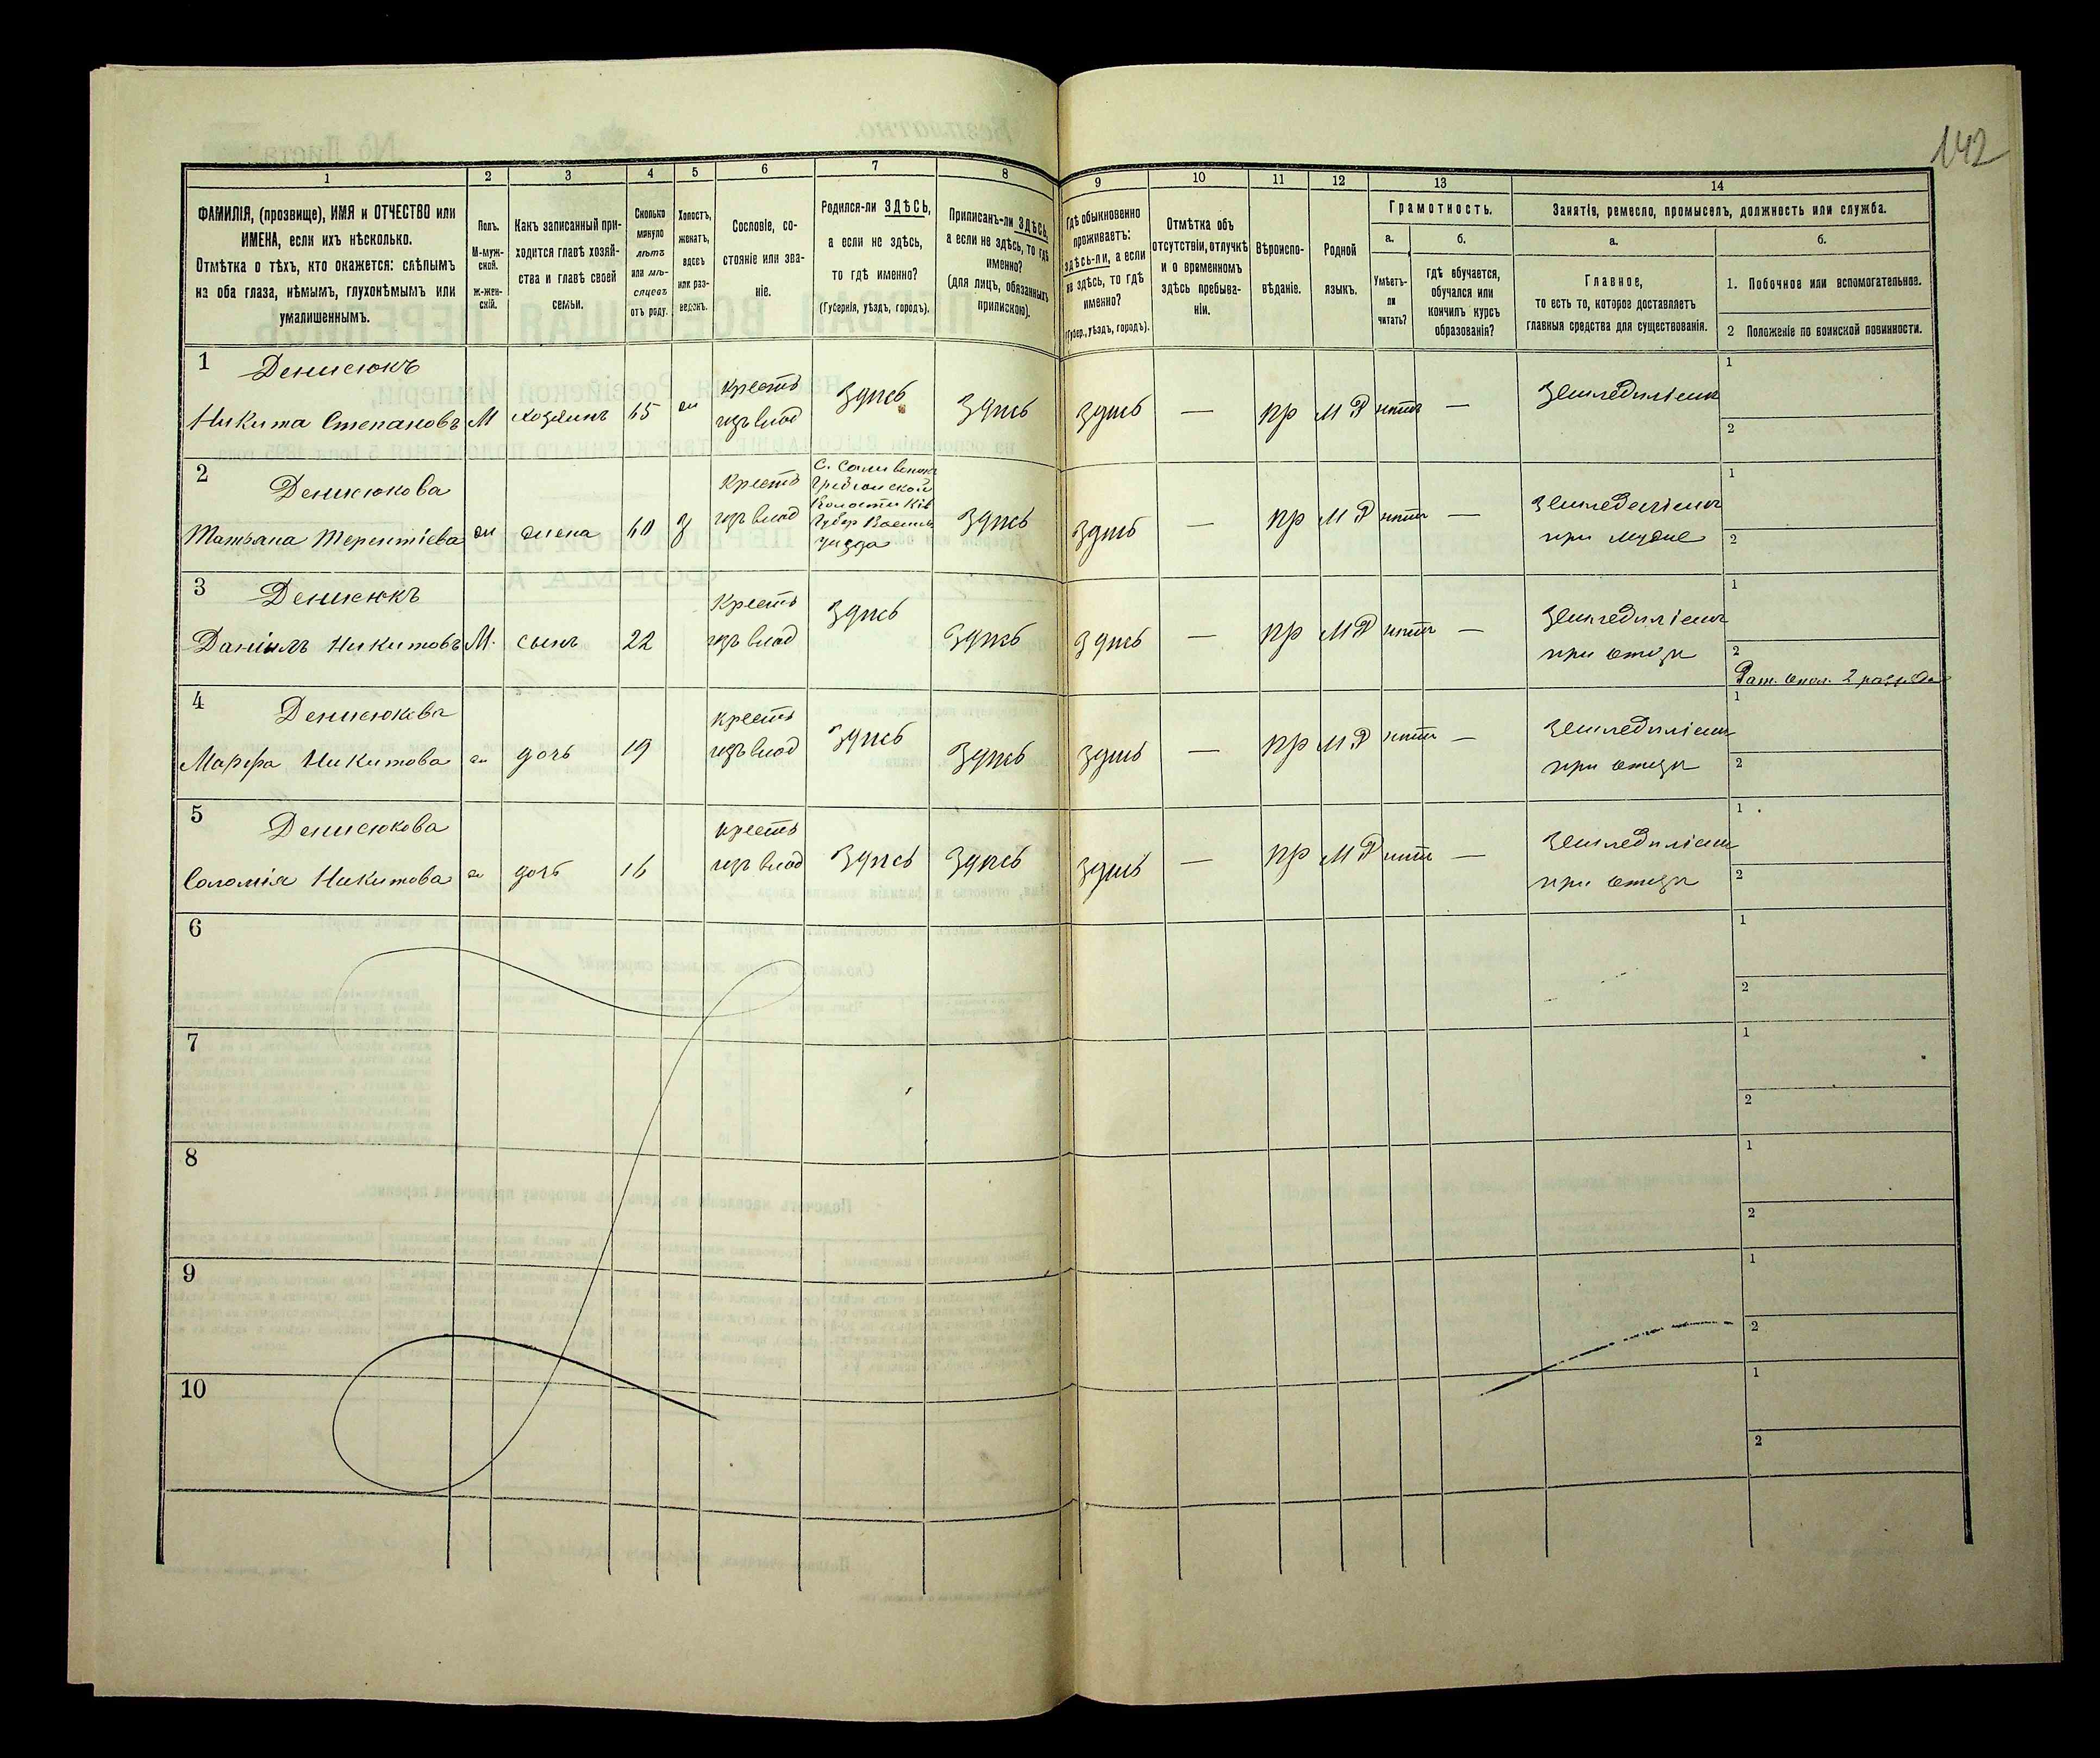 142
1
2
3
4
5
6
7
8
9
10
11
12
13
14
ФАМИЛІЯ, (прозвище), ИМЯ и ОТЧЕСТВО или
ИМЕНА, если ихъ нѣсколько.
Отмѣтка о тѣхъ, кто окажется: слѣпымъ
на оба глаза, нѣмымъ, глухонѣмымъ или
умалишеннымъ.
Полъ.
М-муж-
ской.
ж-жен-
скій.
Какъ записанный при-
ходится главѣ хозяй-
ства и главѣ своей
семьи.
Сколько
минуло
лѣтъ
или мѣ-
сяцевъ
отъ роду.
Холостъ,
женатъ,
вдовъ
или раз-
веденъ.
Сословіе, со-
стояніе или зва-
ніе.
Родился-ли ЗДѢСЬ,
а если не здѣсь,
то гдѣ именно?
(Губернія, уѣздъ, городъ).
Приписанъ-ли ЗДѢСЬ,
а если не здѣсь, то гдѣ
именно?
(для лицъ, обязанныхъ
припискою).
Гдѣ обыкновенно
проживаетъ:
здѣсь-ли, а если
не здѣсь, то гдѣ
именно?
(Губер., уѣздъ, городъ).
Отмѣтка объ
отсутствіи, отлучкѣ
и о временномъ
здѣсь пребыва-
ніи.
Вѣроиспо-
вѣданіе.
Родной
языкъ.
Грамотность.
а.
б.
Умѣетъ-
ли
читать?
гдѣ обучается,
обучался или
кончилъ курсъ
образованія?
Занятіе, ремесло, промыселъ, должность или служба.
а.
б.
Главное,
то есть то, которое доставляетъ
главныя средства для существованія.
1. Побочное или вспомогательное.
2 Положеніе по воинской повинности.
1
Денисюкъ
Никита Степановъ
М
хозяинъ
65
ж
крестъ
изъ влад
Здѣсь
Здѣсь
здѣсь
—
пр
М Р
нѣтъ
—
Земледѣліемъ
1
2
2
Денисюкова
Татьяна Терентіева
ж
жена
60
З
Крестъ
изъ влад
уѣзда
Здѣсь
Здѣсь
—
пр
М Р
нѣтъ
—
Земледѣліемъ
при мужѣ
1
2
3
Денисюкъ
Даніилъ Никитовъ
М.
сынъ
22
Крестъ
изъ влад
Здѣсь
Здѣсь
Здѣсь
—
пр
М Р
нѣтъ
—
Земледѣліемъ
при отцѣ
1
2
Рат. опол. 2 разряда
4
Денисюкова
Марфа Никитова
ж
дочь
19
крестъ
изъ влад
Здѣсь
Здѣсь
здѣсь
—
пр
М Р
нѣтъ
—
Земледѣліемъ
при отцѣ
1
2
5
Денисюкова
Соломія Никитова
ж
дочь
16
крестъ
изъ влад
Здѣсь
Здѣсь
здѣсь
—
пр
М Р
нѣтъ
—
Земледѣліемъ
при отцѣ
1
2
6
1
2
7
1
2
8
1
2
9
1
2
10
1
2